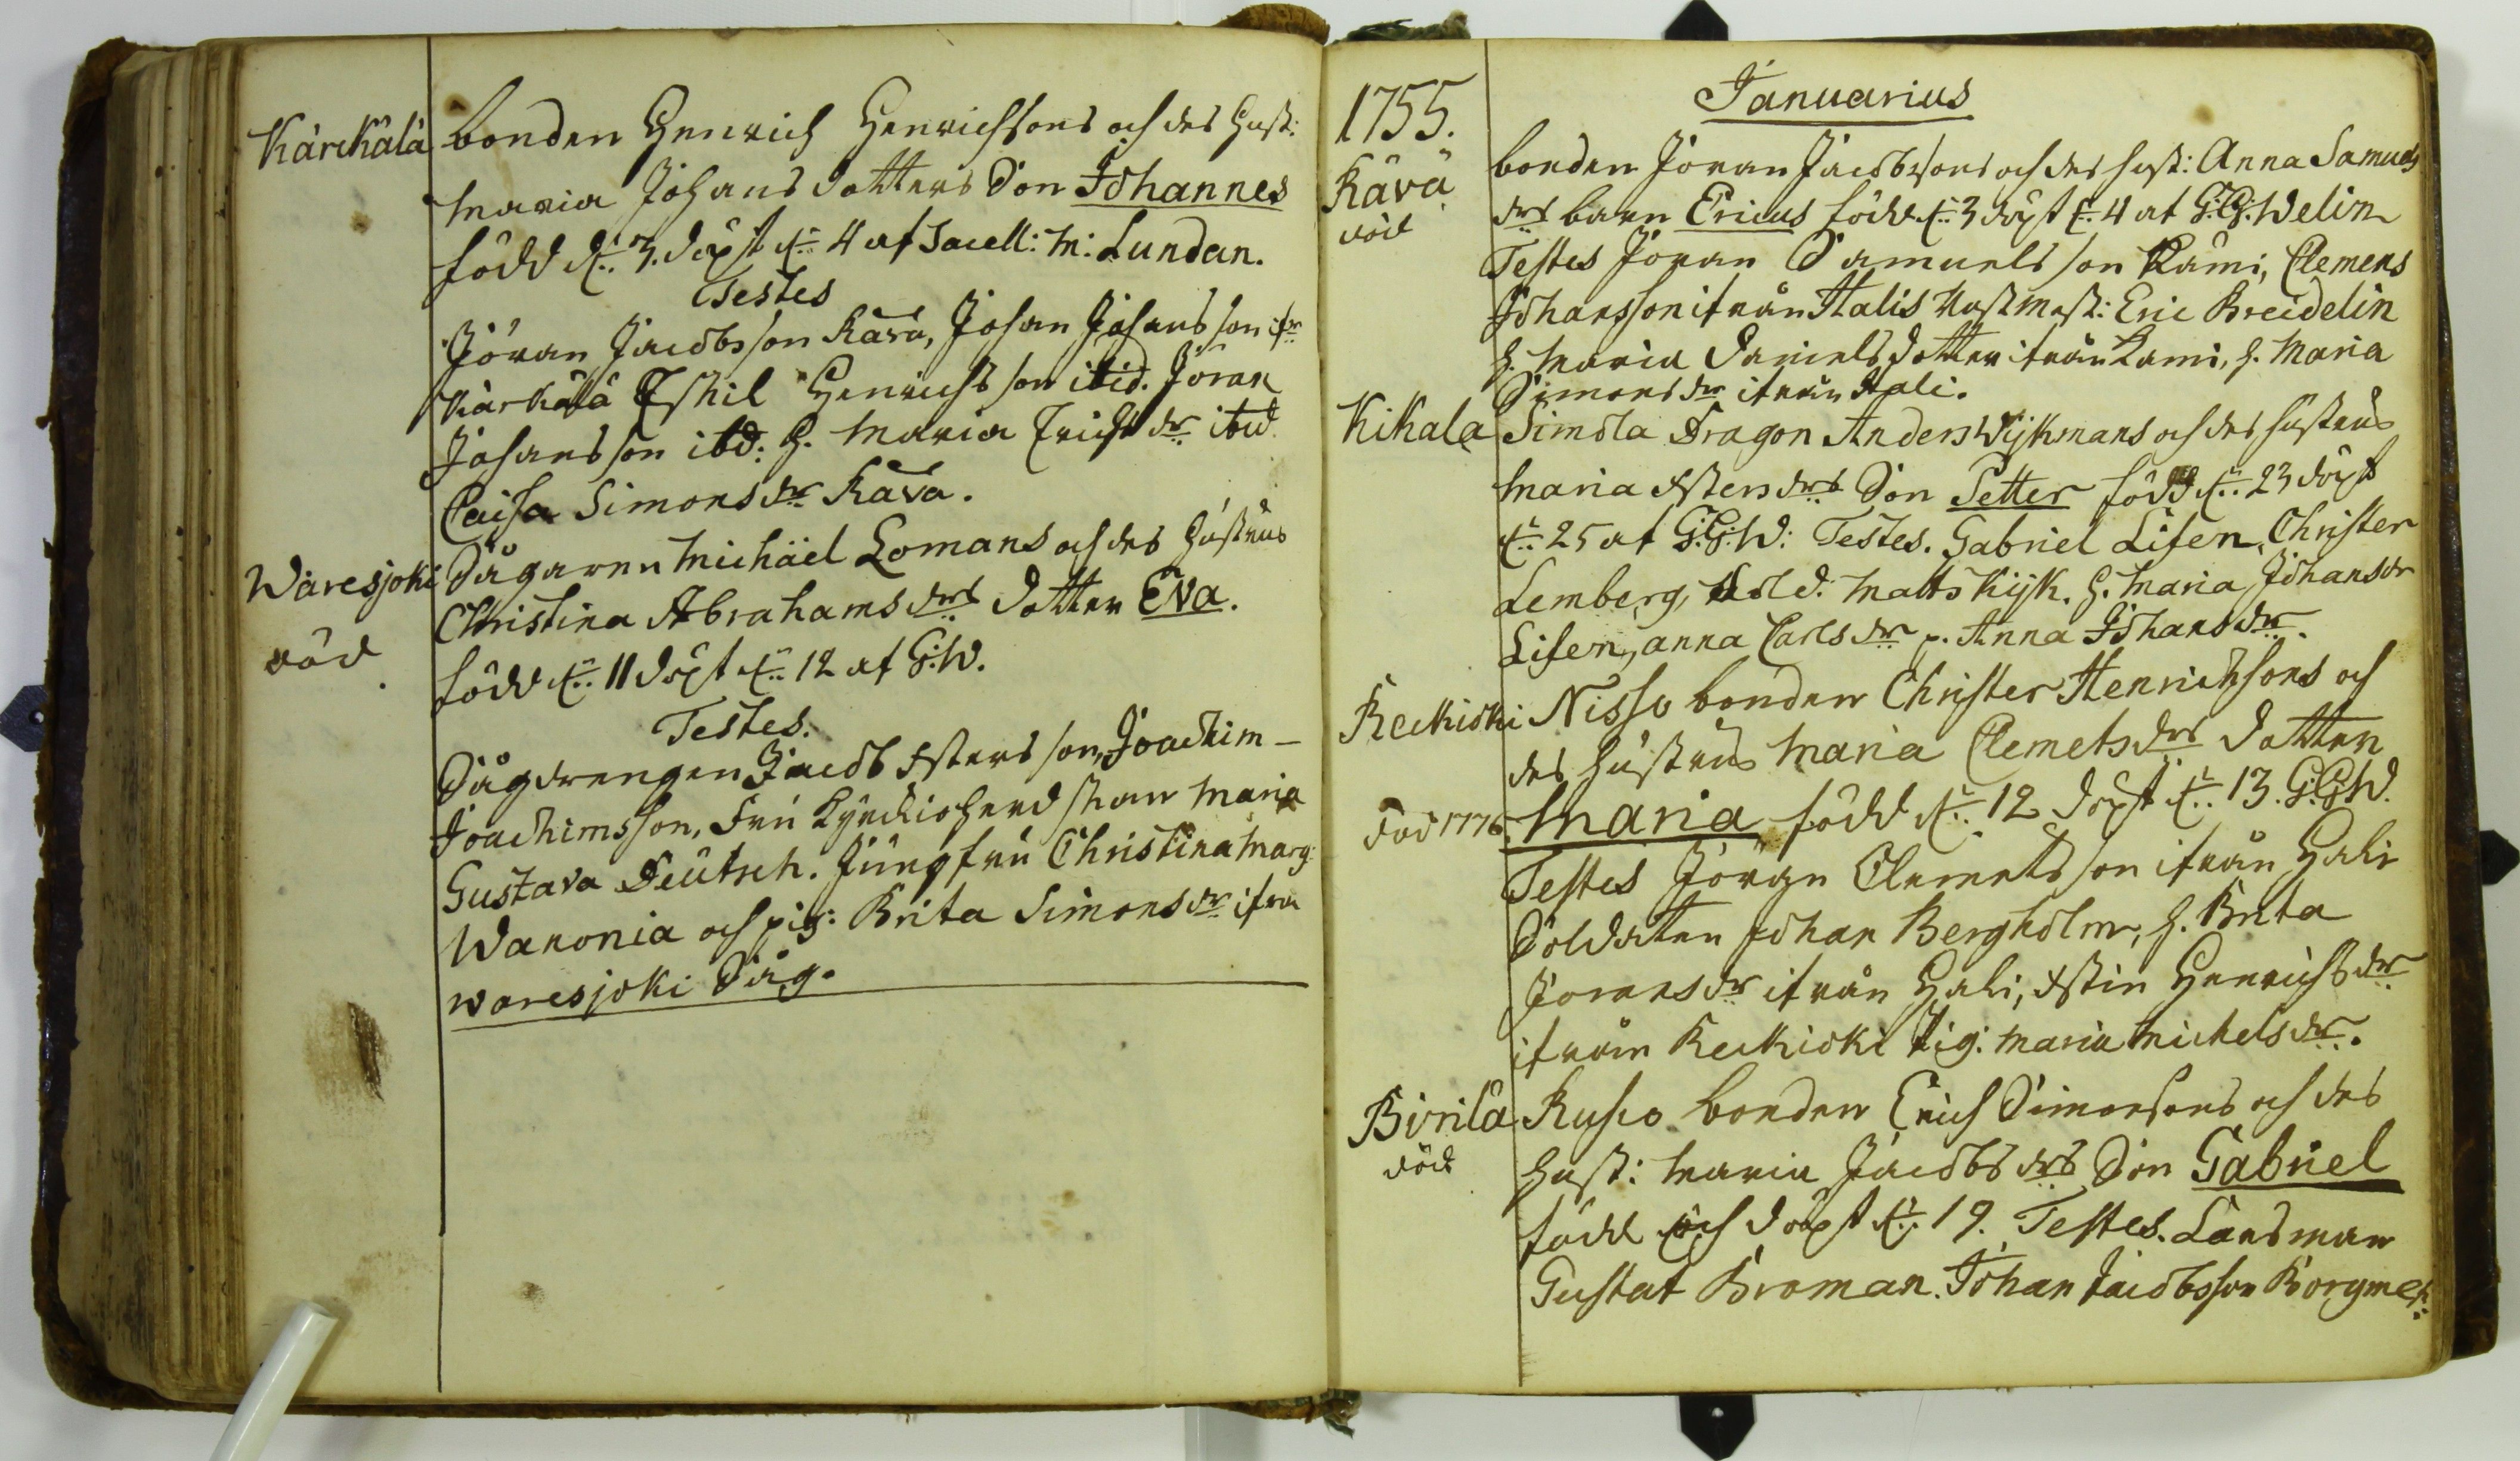 Kärckälä bonden Henrich Henrichsons och des Hust:
Maria Johans dotters Son Johannes
född d: 3. döpt d: 4 af Sacell: M: Lundan.
Testes
Jöran Jacobsson Kävä, Johan Johansson ifr
Kärkälä Eskil Henrichsson ibid. Jöran
Johansson ibd: h. Maria Erichs dr ibid.
Caisa Simons dr Kävä.
Waresjoki Sågaren Michäel Lomans och des Hustrus
Christina Abrahams drs dotter Eva.
död
född d: 11 döpt d: 12 af G:W.
Testes.
Sågdrengen Jacob son, Joachim
Joachimsson, Fru Kyrckioherdskan Maria
Gustava Deutsch. Jungfru Christina Marg:
Wanonia och pig: Brita Simons dr ifrå
waresjoki Såg.
1755.
Januarius
Kävä bonden Jöran Jacobssons och des hust: Anna Samuels
död
drs barn Ericus född d: 3 döpt d: 4 af G:G: Welin
Testes Jöran Samuelsson Rämi, Clemens
Johansson ifrån Halis Mast: Eric Breidelin
h. Maria Daniels dotter ifrån Rami, h. Maria
Simons dr ifrån Hali.
Kikala Simola Dragon Anders Wijkmans och des hustrus
Maria drs Son Petter född d: 23 döpt
d: 25 af G:G:W: Testes. Gabriel Lisen, Christer
Lemberg, Matts Kijk. h. Maria Johans dr
Lisen, anna Carls dr p. Anna Johans dr.
Reckioki Nisso bonden Christer Henrichsons och
des hustrus Maria Clemets drs dotter
död 1776. Maria född d: 12 döpt d: 13. G:G:W.
Testes Jöran Clemetsson ifrån Hali
Soldaten Johan Bergholm, h. Brita
Jörans dr ifrån Hali, Henrichs dr
ifrån Reckioki Pig: Maria Michels dr.
Pirilä Kusio bonden Erich Simonsons och des
död
Hust: Maria Jacobs drs Son Gabriel
född och döpt d: 19. Testes. Landsman
Gustaf Broman. Johan Jacobsson Borgmest: